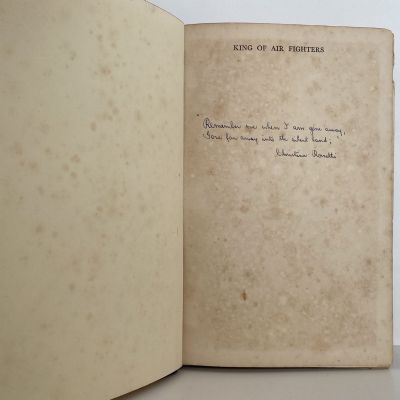 KING OF AIR FIGHTERS
"Remember me when I am gone away,
Gone far away into the silent land;"
Christina Rossetti